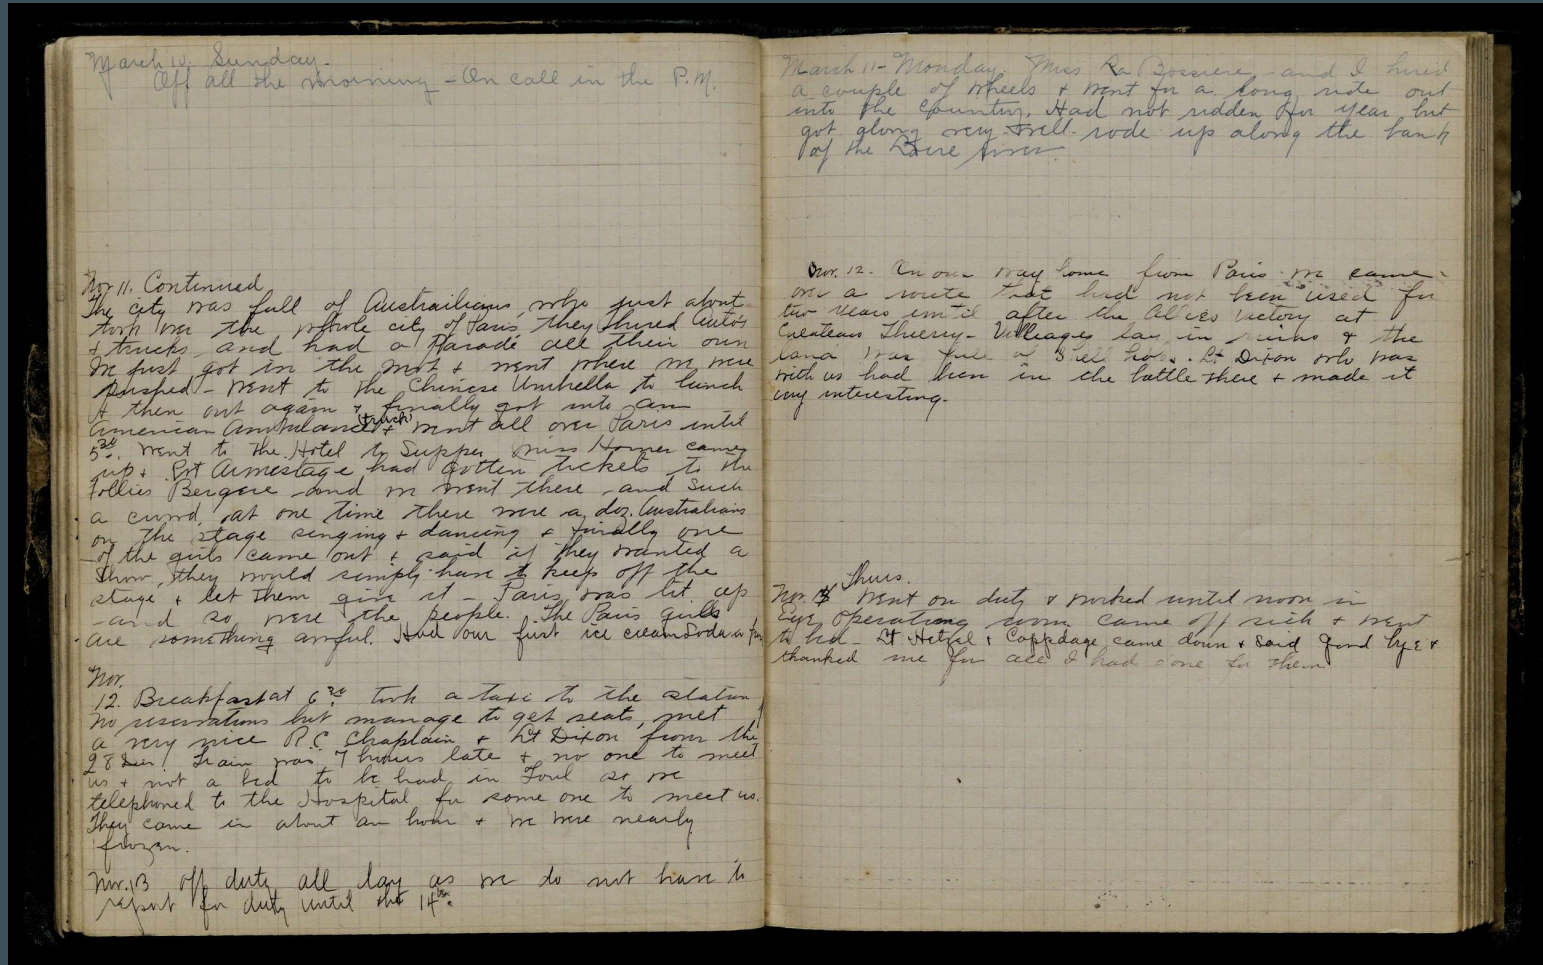 March 10, Sunday.
Off all the morning - On call in the P.M.
Nov 11. Continued
The city was full of Austrailians who just about
took over the whole city of Paris, they hired Auto's
+ trucks and had a Parade all their own
We just got in the mob + went where we were
pushed - went to the Chinese Umbrella to lunch
+ then out again + finally got into an
American Ambulance (truck) + went all over Paris until
5 30. Went to the Hotel to Supper Miss Horner came
up + Armestage had gotten tickets to the
Follies Bergere and we went there and such
a crowd, at one time there were a doz. Australians
on the stage singing + dancing + finally one
of the girls came out + said if they wanted a
show, they would simply have to keep off the
stage + let them give it - Paris was lit up
and so were the people. The Paris girls
are something awful. Had our first ice cream Soda in
Nov.
12. Breakfast at 6 30 took a taxi to the station
no reservations but manage to get seats, met
a very nice R.C. Chaplain + Lt Dixon from the
28 Train was 7 hours late + no one to meet
us + not a bed to be had in Toul so we
telephoned to the Hospital for some one to meet us.
They came in about an hour + we were nearly
frozen.
Nov. 13 off duty all day as we do not have to
report for duty until the 14th.
March 11 - Monday. Miss La Bossiere and I hired
a couple of wheels + went for a long ride out
into the Country. Had not ridden for year but
got along very well. rode up along the bank
of the Loire river
Nov. 12. On our way home from Paris we came
over a route that had not been used for
two years until after the Allies Victory at
Thierry - Villeages lay in ruins + the
land was full of Shell holes. Lt Dixon who was
with us had been in the battle there + made it
very interesting.
Thurs.
Nov. 14 Went on duty + worked until noon in
Eye operating room came off sick + went
to bed - Lt Hetzel + Coppdage came down + said good bye +
thanked me for all I had done for them